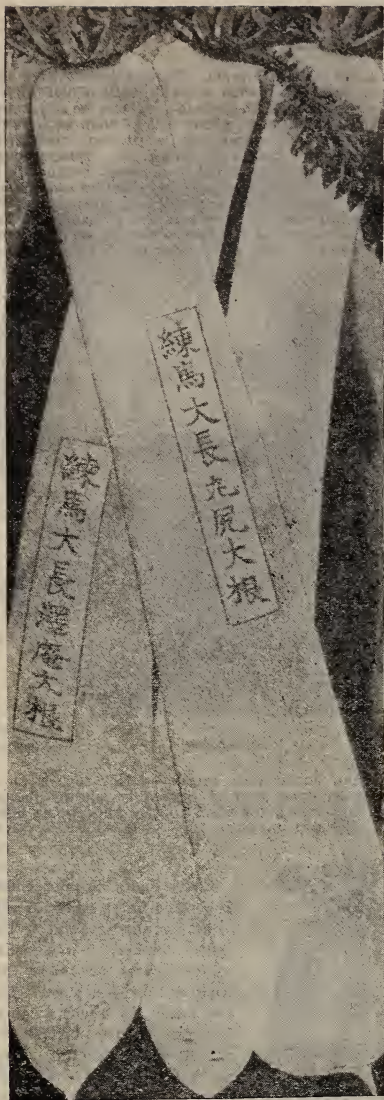 練馬大長丸尻大根
練馬大長大根